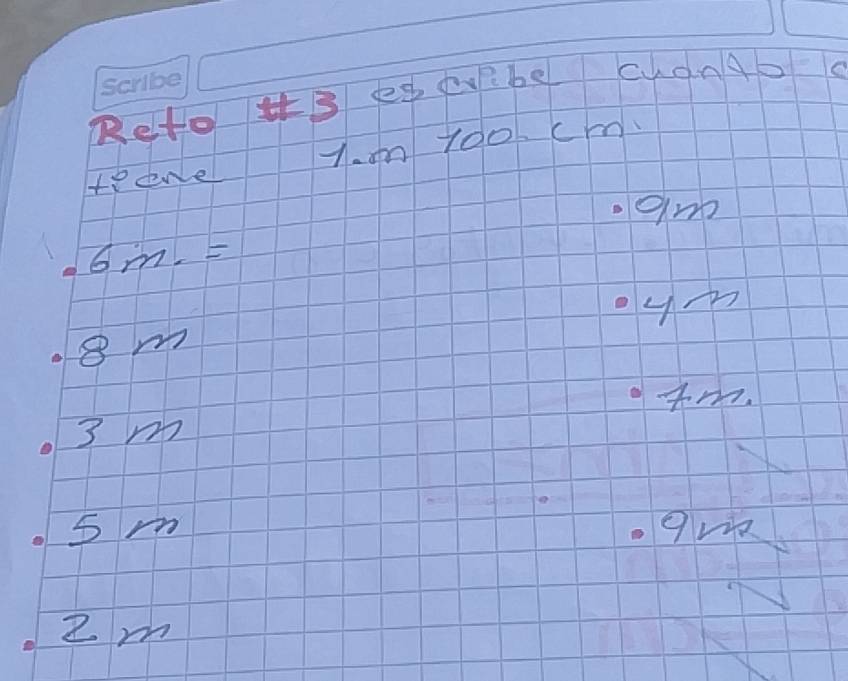 Scribe
Reto #3 escribe cuanto c
tiene 1.m 100. cm.
• 6 m. =
• 9m
• 8 m
• 4 m
• 3 m
• 7m.
• 5 m
• 9m
• 2 m